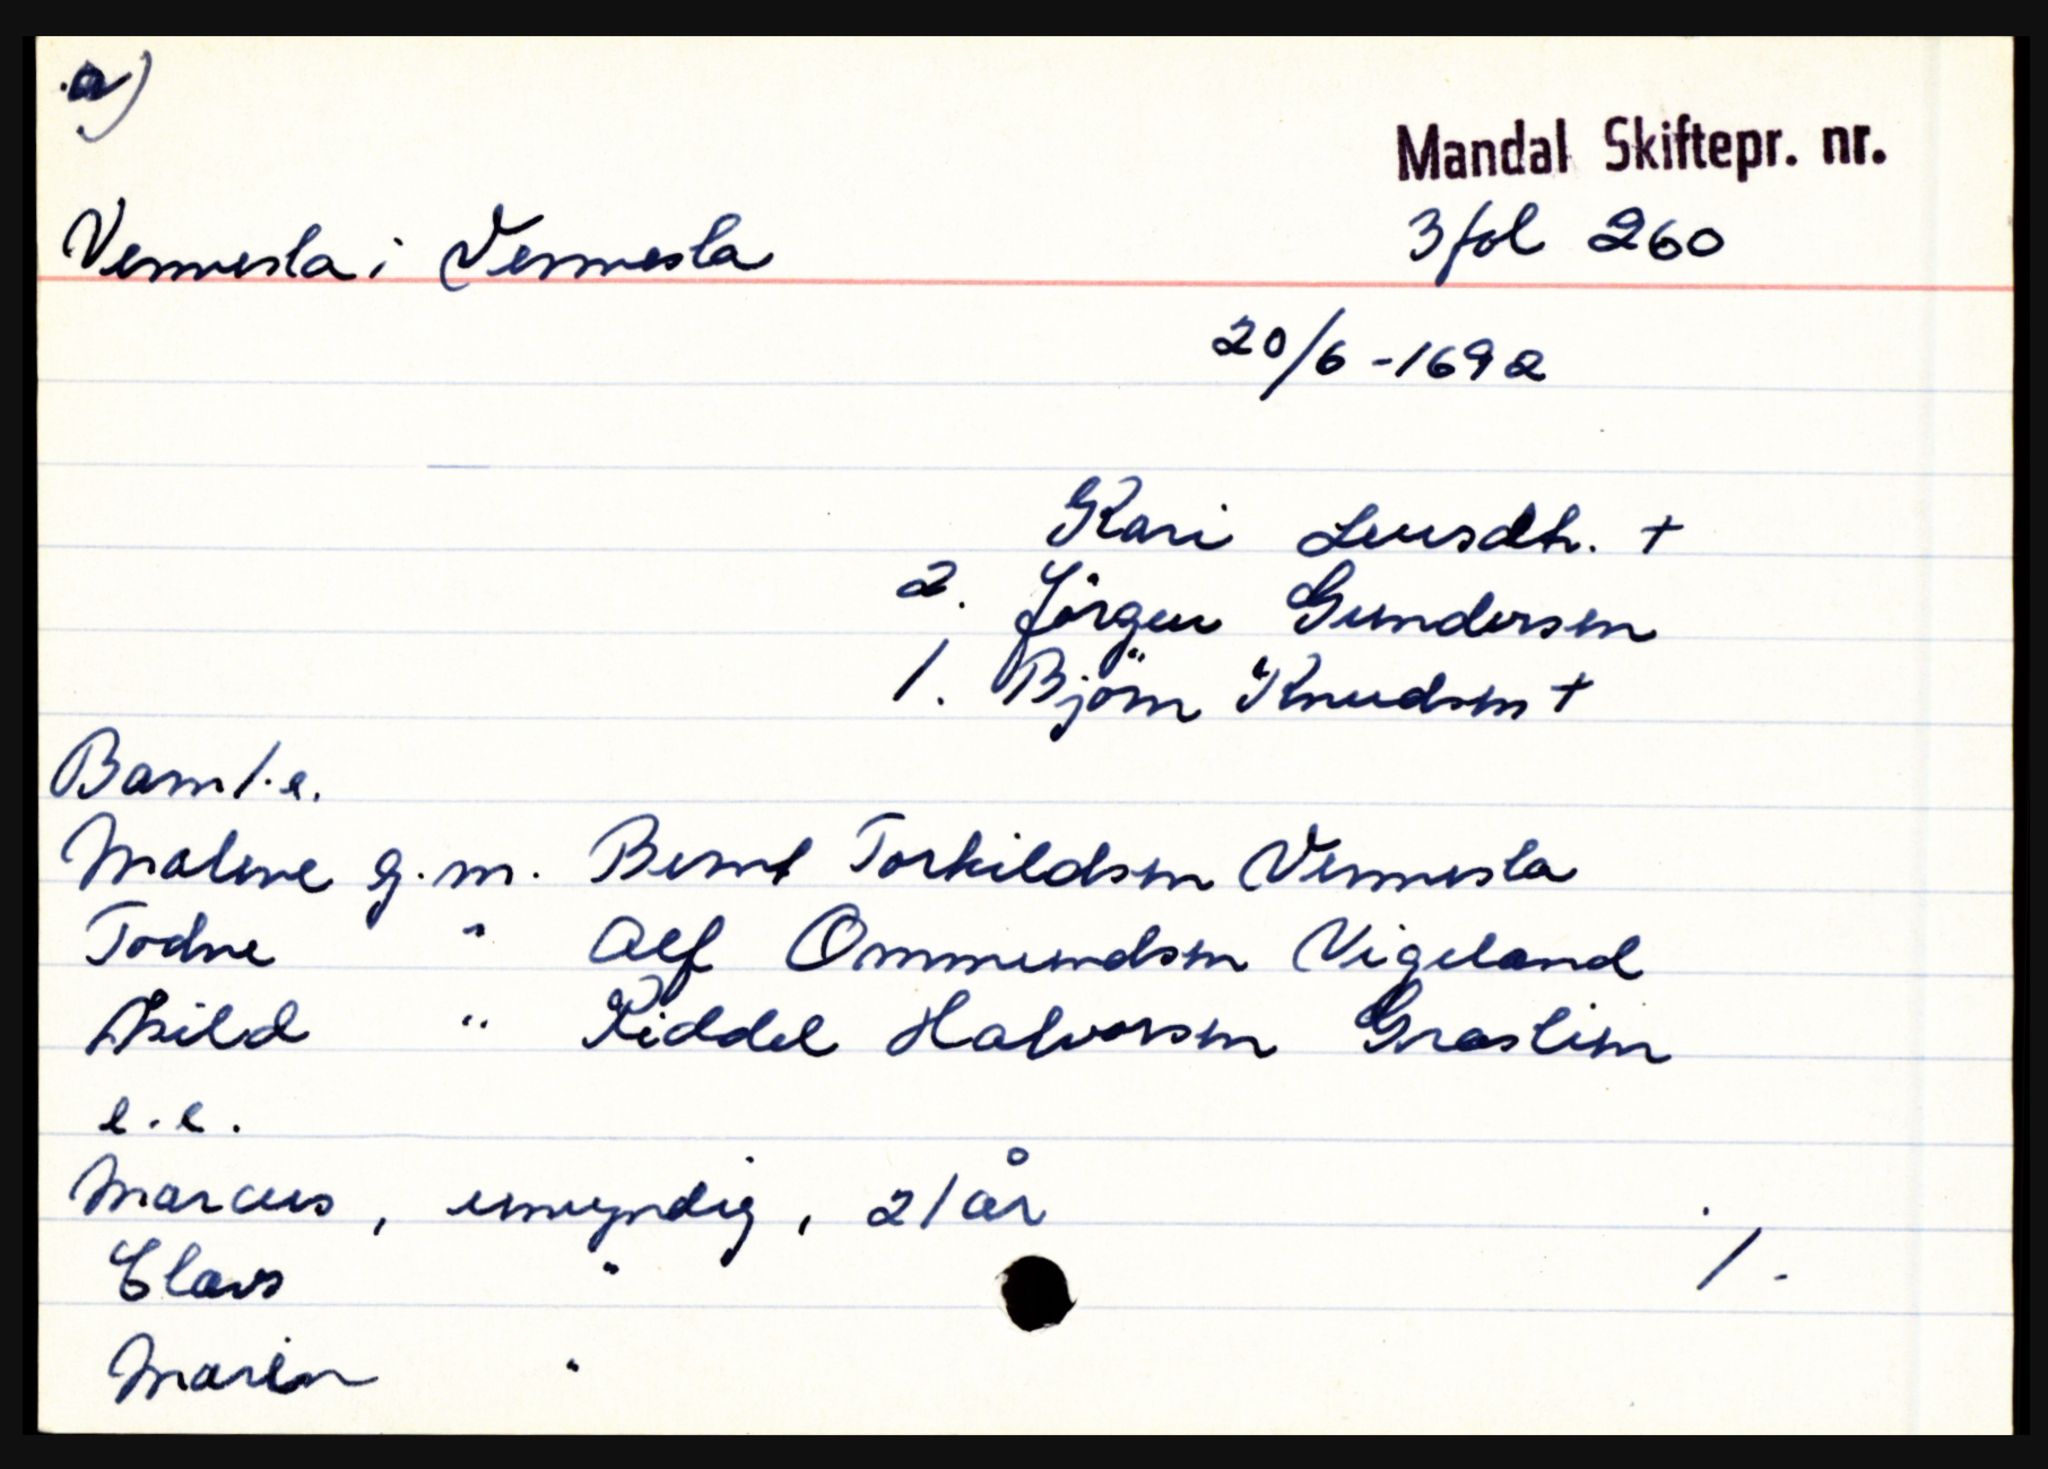 a)
Mandal Skiftepr. nr.
Vennesla i Vennesla 3 fol 260
20/6 - 1692
Kari Leusdtr. +
2. Jörgen Gundersen
1. Björn Knudsen +
Barn 1. e.
Malene g. m. Bernt Torkildsen Vennesla
Todne " Alf Ommundsen Vigeland
Askild " Kiddel Halvorsen Graslien
2. e.
Marcus, umyndig, 21 år
Claus "
1.
Maren "